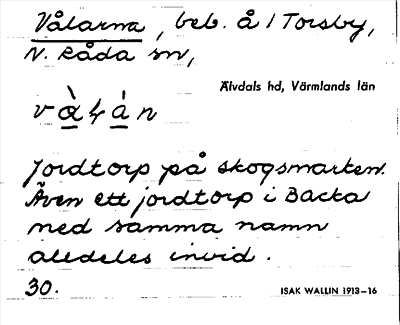 Vålarna, beb. å 1 Torsby,
N. Råda sn,
Älvdals hd, Värmlands län
Jordtorp på skogsmarken.
Även ett jordtorp i Backa
med samma namn
alldeles invid.
30.
ISAK WALLIN 1913–16